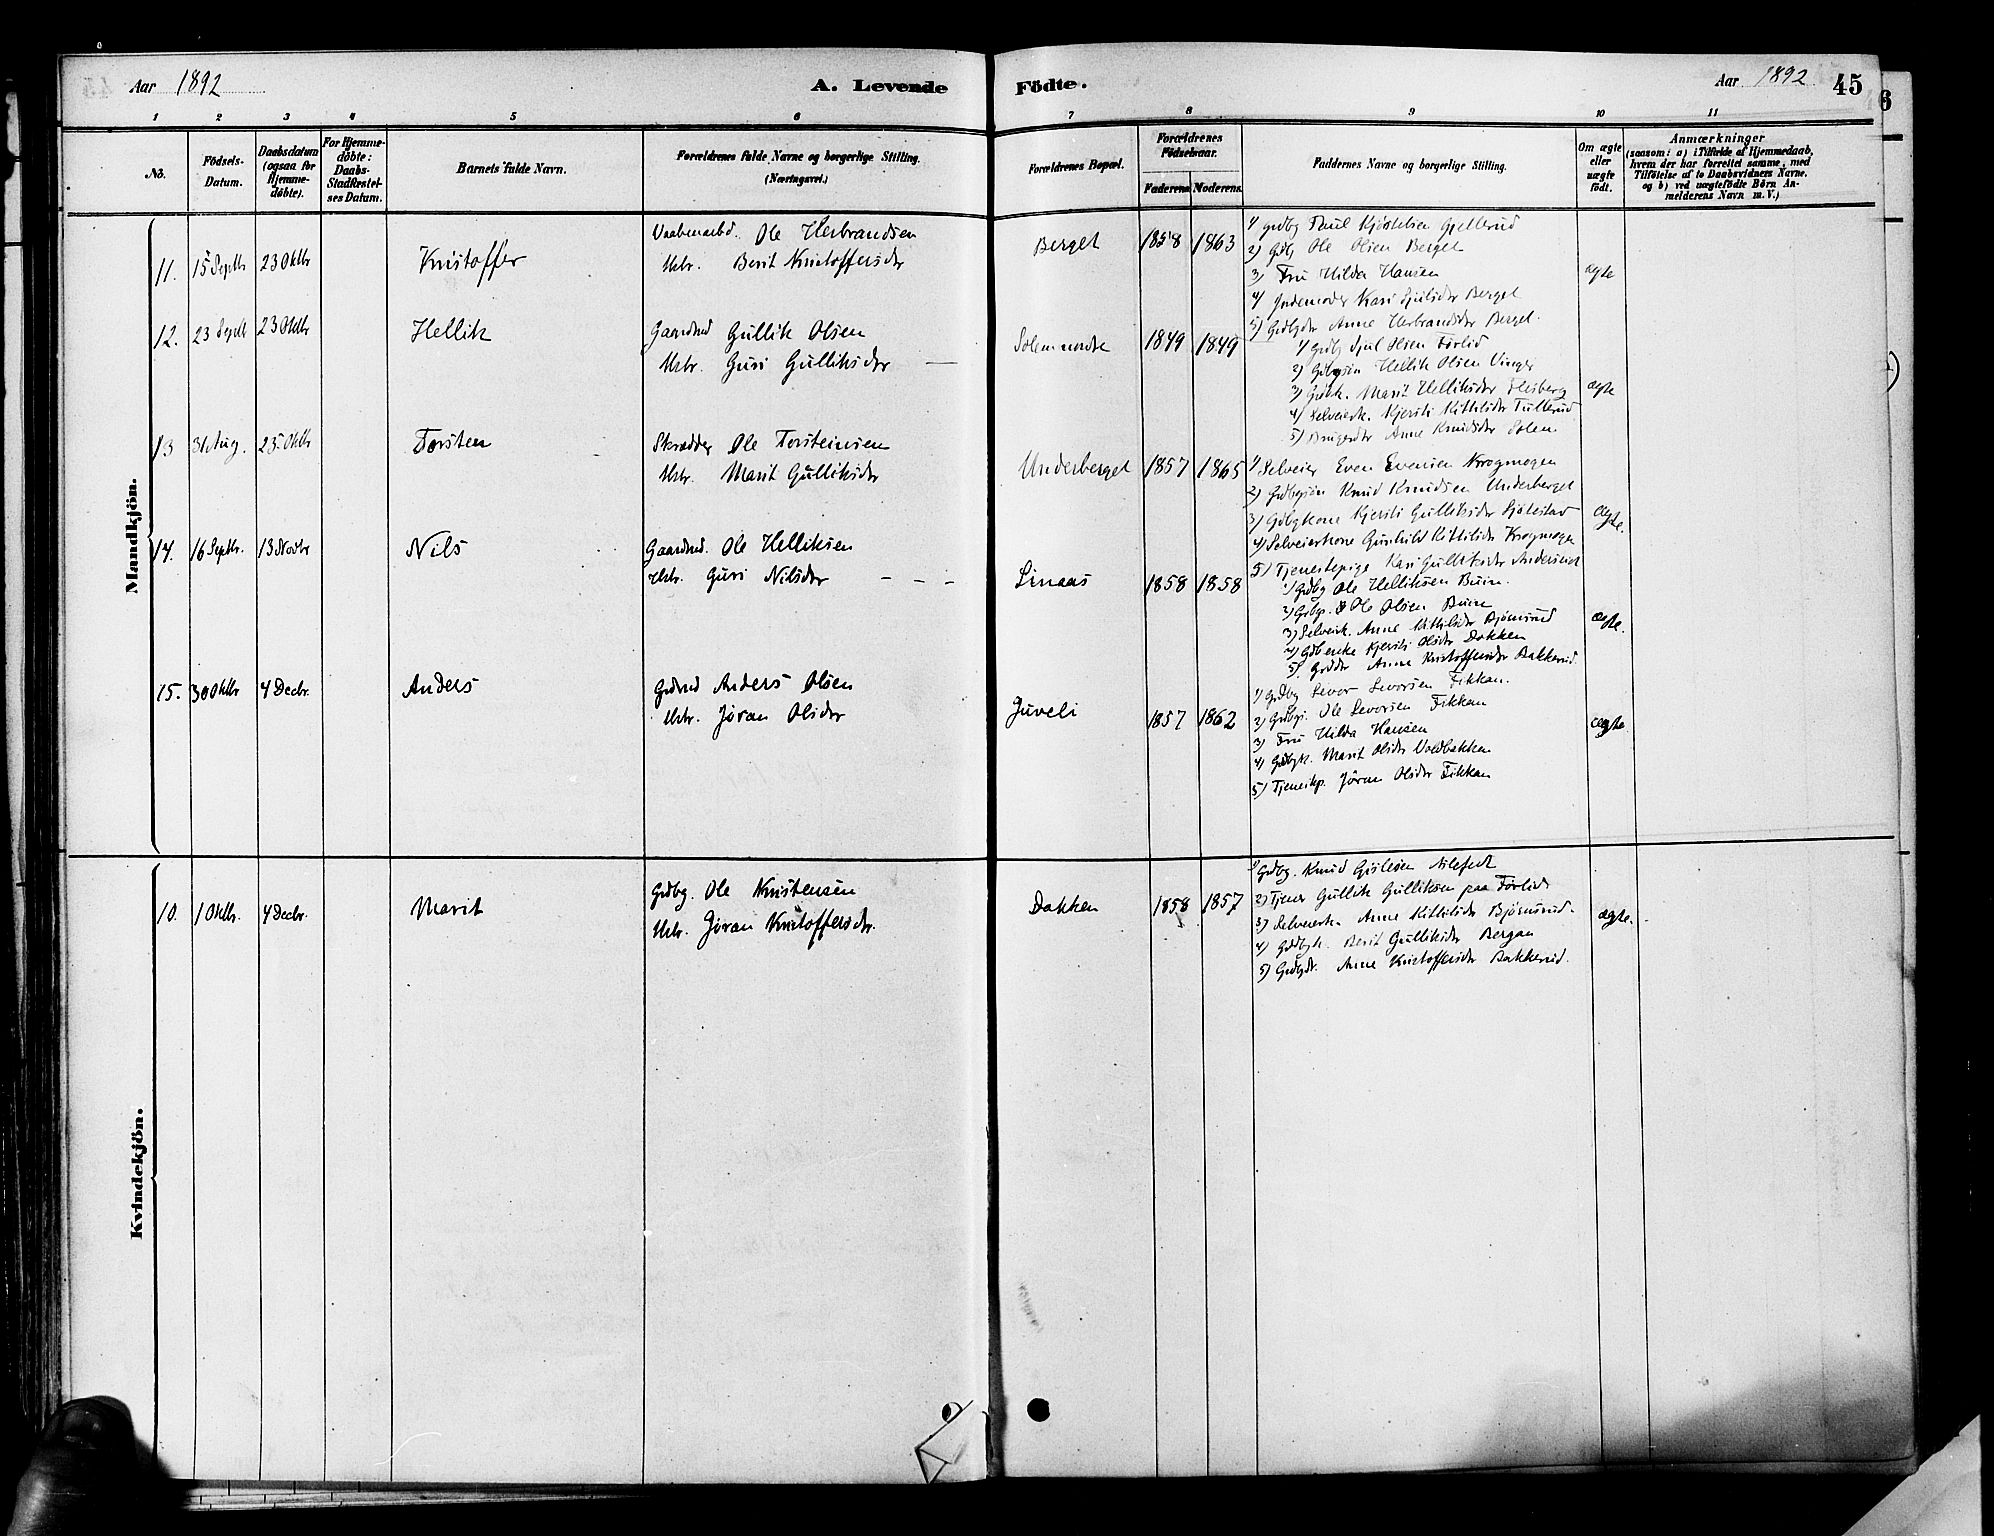 Aar 1892
A. Levende
Födte.
Aar 1892
45
6
1 2 3 4 5 6 7 8 9 10 11
No.
Födsels-
Datum.
Daabsdatum
(ogsaa for
Hjemme-
döbte).
For Hjemme-
döbte:
Daabs-
Stadfæstel-
ses Datum.
Barnets fulde Navn.
Forældrenes fulde Navne og borgerlige Stilling.
(Næringsvei.)
Forældrenes Bopæl.
Forældrenes
Födselsaar.
Faderens Moderens.
Faddernes Navne og borgerlige Stilling.
Om ægte
eller
uægte
födt.
Anmærkninger
(saasom: a) i Tilfælde af Hjemmedaab,
hvem der har forrettet samme, med
Tilföielse af to Daabsvidners Navne.
og b) ved uægtefödte Börn An-
melderens Navn m. V.)
Mandkjön.
11. 15 Septb 23 Oktbr Kristoffer
Vaabenarbd. Ole Herbrandsen
Hstr. Berit Kristoffersdr
Berget 1858 1863
1) Grdbg Paul Kjöstelsen Gjellerud
2) Gdbg Ole Olsen Berget
3) Fru Hilda Hansen
4) Jordemoder Kari Sjulsdr Berget
5) Grdbgdtr Anne Herbrandsdr Berget.
ægte
12. 23 Septb 23 Oktbr Hellik
Gaardmd Gullik Olsen
Hstr. Guri Gulliksdr
Solem nordre 1849 1849
1) Grdbg Sjul Olsen Förlid
2) Gdbgsön Hellik Olsen Vinger
3) Grdbk. Marit Helliksdr Flesberg
4) Selveierk. Kjersti Kittilsdr Tullerud
5) Anne Knudsdr Solem
ægte
13 31 Aug. 23. Oktbr Torsten
Skrædder Ole Torsteinsen
Hstr. Marit Gulliksdr
Underberget 1857 1865
1) Selveier Even Evensen Krogmogen
2) Grdbgsön Knud Knudsen Underberget
3) Gdbgkone Kjersti Gulliksdr
4) Selveierkone Gunhild Kittilsdr Krogmogen
5) Tjenestepige Kari Gulliksdr
Ægte.
14. 16 Septbr. 13 Novbr Nils
Gaardmd. Ole Helliksen
Hstr. Guri Nilsdr
Linaas 1858 1858
1) Grdbg Ole Helliksen Buin.
2) Grbgs. Ole Olsen Buin
3) Selveierk. Anne Kittilsdr Bjömsrud
4) Kjersti Olsdr Dokken
5) Anne Kristoffersdr Bakkerud
ægte.
15. 30 Oktbr 4 Decbr. Anders
Grdmd Anders Olsen
Hstr. Jöran Olsdr
Juveli 1857 1862
1) Grdbg Levor Levorsen Fekkan.
2) Grdbgs. Ole Levorsen Fekkan
3) Fru Hilda Hansen
4) Grdbgk. Marit Olsdr Voldbakken
5) Tjenestep. Jöran Olsdr Fekkan
ægte
Kvindekjön.
10. 1 Oktbr. 4 Decbr. Marit
Grdbg. Ole Kristensen
Hstr. Jöran Kristoffersdr.
Dokken 1858 1857
1) Grdbg. Knud Gislesen
2) Tjener Gullik Gulliksen paa Förlid
3) Selveierk. Anne Kittilsdr Bjömsrud.
4) Grdbgk. Berit Gulliksdr Bergan
5) Grdbgdt. Anne Kristoffersdr Bakkerud.
ægte.